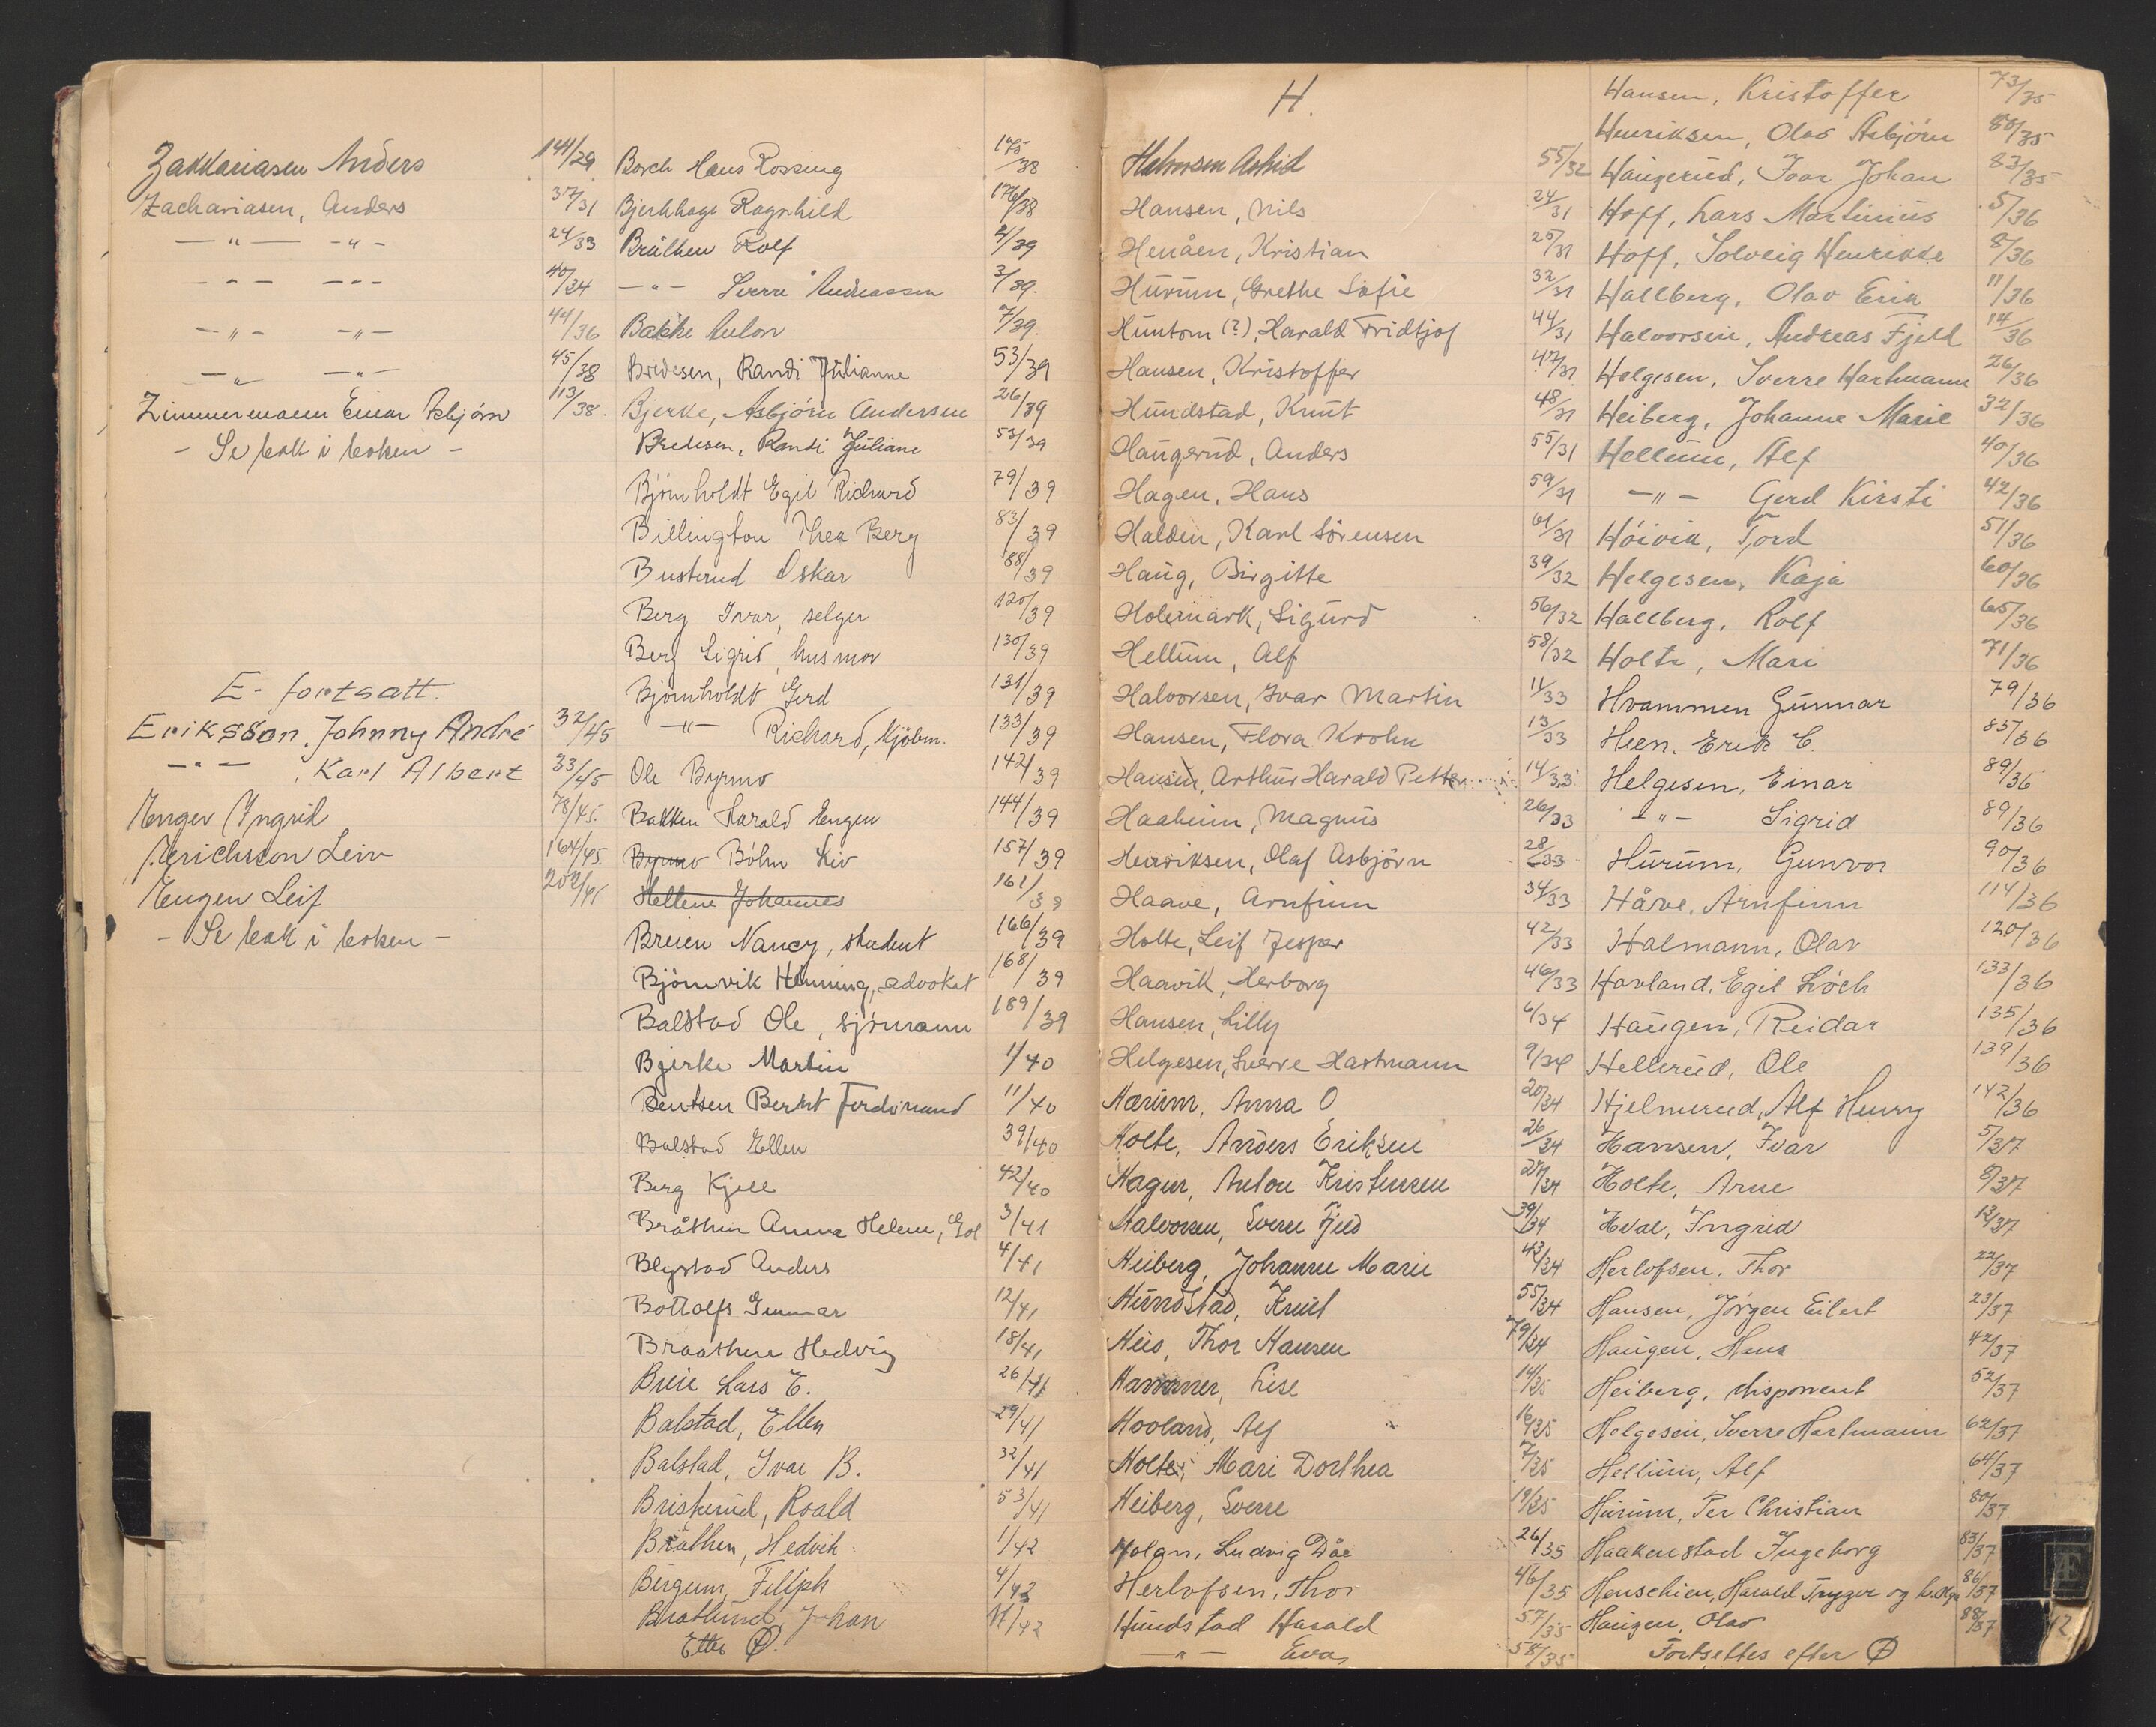 Zakkariasen Anders 144/29
Zachariasen, Anders 37/31
— " — — " — 24/33
— " — — " — 40/34
— " — — " — 44/36
— " — — " — 45/38
Zimmermann Einar Asbjörn 113/38
- Se bak i boken -
E - fortsatt.
Eriksson, Johnny André 32/45
— " — , Karl Albert 33/45
Enger Ingrid 78/45.
Erichsson Leiv 164/45.
Engen Leif
- Se bak i boken -
Borch Hans Rossing 175/38
Bjerkhage Ragnhild 176/38
Bråthen Rolf 2/39
— " — Sverre Andreassen 3/39.
Bakke Anton 7/39.
Bredesen, Randi Julianne 53/39
Bjerke, Asbjörn Andersen 26/39
Bredesen, Randi Juliane 53/39
Björnholdt Egil Richard 79/39
Billington Thea Berg 83/39
Busterud Oskar 88/39
Berg Ivar, selger 120/39
Berg Sigrid, husmor 130/39
Björnholdt Gerd 131/39
— " — Richard, kjöbm. 133/39
Ole Byrmo 142/39
Bakken Harald Engen 144/39
Byrmo Böhn Liv 157/39
Hellene Johannes 161/39
Breien Nancy, student 166/39
Björnvik Henning, advokat 168/39
Balstad Ole, sjömann 189/39
Bjerke Martin 1/40
Bentsen Bernt Ferdinand 11/40
Balstad Ellen 39/40
Berg Kjell 42/40
Bråthen Anna Helene, Gol 3/41
Blystad Anders 4/41
Bottolfs Gunnar 12/41
Braathen Hedvig 18/41
Breie Lars E. 26/41
Balstad, Ellen 29/41
Balstad, Ivar B. 32/41
Briskerud, Roald 53/41
Bråthen, Hedvik 1/42
Bergum, Filliph 4/42
Bratlund, Johan 11/42
Etter Ø.
H.
Halvorsen Astrid 55/32
Hansen, Nils 24/31
Henåen, Kristian 25/31
Hurum, Grethe Sofie 32/31
Huntom (?), Harald Fridtjof 44/31
Hansen, Kristoffer 47/31
Hundstad, Knut 48/31
Haugerud, Anders 55/31
Hagen, Hans 59/31
Halden, Karl Sörensen 61/31
Haug, Birgitte 39/32
Holemark, Sigurd 56/32
Hellum, Alf 58/32
Halvorsen, Ivar Martin 11/33
Hansen, Flora Krohn 13/33
Hansen, Arthur Harald Petter 14/33
Haaheim, Magnus 26/33
Henriksen, Olaf Asbjörn 28/33
Haave, Arnfinn 34/33
Holte, Leif Jesper 42/33
Haavik, Herborg 46/33
Hansen, Lilly 6/34
Helgesen, Sverre Hartmann 9/34
Hærum, Anna O 20/34
Holte, Anders Eriksen 26/34
Hagen, Anton Kristensen 27/34
Halvorsen, Sverre Fjeld 39/34
Heiberg, Johanne Marie 43/34
Hundstad, Knut 55/34
Heis, Thor Hansen 79/34
Hammer, Lise 14/35
Hovland, Alf 16/35
Holte, Mari Dorthea 7/35
Heiberg, Sverre 19/35
Holan, Ludvig Dåe 26/35
Herlofsen, Thor 46/35
Hundstad Harald 57/35
— " — Eva 58/35
Hansen, Kristoffer 73/35
Henriksen, Olav Asbjörn 80/35
Haugerud, Ivar Johan 83/35
Hoff, Lars Martinius 5/36
Hoff, Solveig Henrikke 8/36
Hallberg, Olav Erik 11/36
Halvorsen, Andreas Fjeld 14/36
Helgesen, Sverre Hartmann 26/36
Heiberg, Johanne Marie 32/36
Hellum, Alf 40/36
— " — Gerd Kirsti 42/36
Höivik, Tord 51/36
Helgesen, Kaja 60/36
Hallberg, Rolf 65/36
Holte, Mari 71/36
Hvammen Gunnar 79/36
Hien, Erik C. 85/36
Helgesen, Einar 89/36
— " — Sigrid 89/36
Hurum, Gunvor 90/36
Håve, Arnfinn 114/36
Halmann, Olav 120/36
Havland, Egil Löch 133/36
Haugen, Reidar 135/36
Hellerud, Ole 139/36
Hjelmerud, Alf Henry 142/36
Hansen, Ivar 5/37
Holte, Arne 8/37
Hval, Ingrid 12/37
Herlofsen, Thor 22/37
Hansen, Jörgen Eilert 23/37
Haugen, Hans 42/37
Heiberg, disponent 52/37
Helgesen, Sverre Hartmann 62/37
Hellum, Alf 64/37
Hurum, Per Christian 80/37
Haakenstad Ingeborg 83/37
Henschien, Harald Trygve og 86/37
Haugen, Olav 88/37
Fortsettes efter Ø